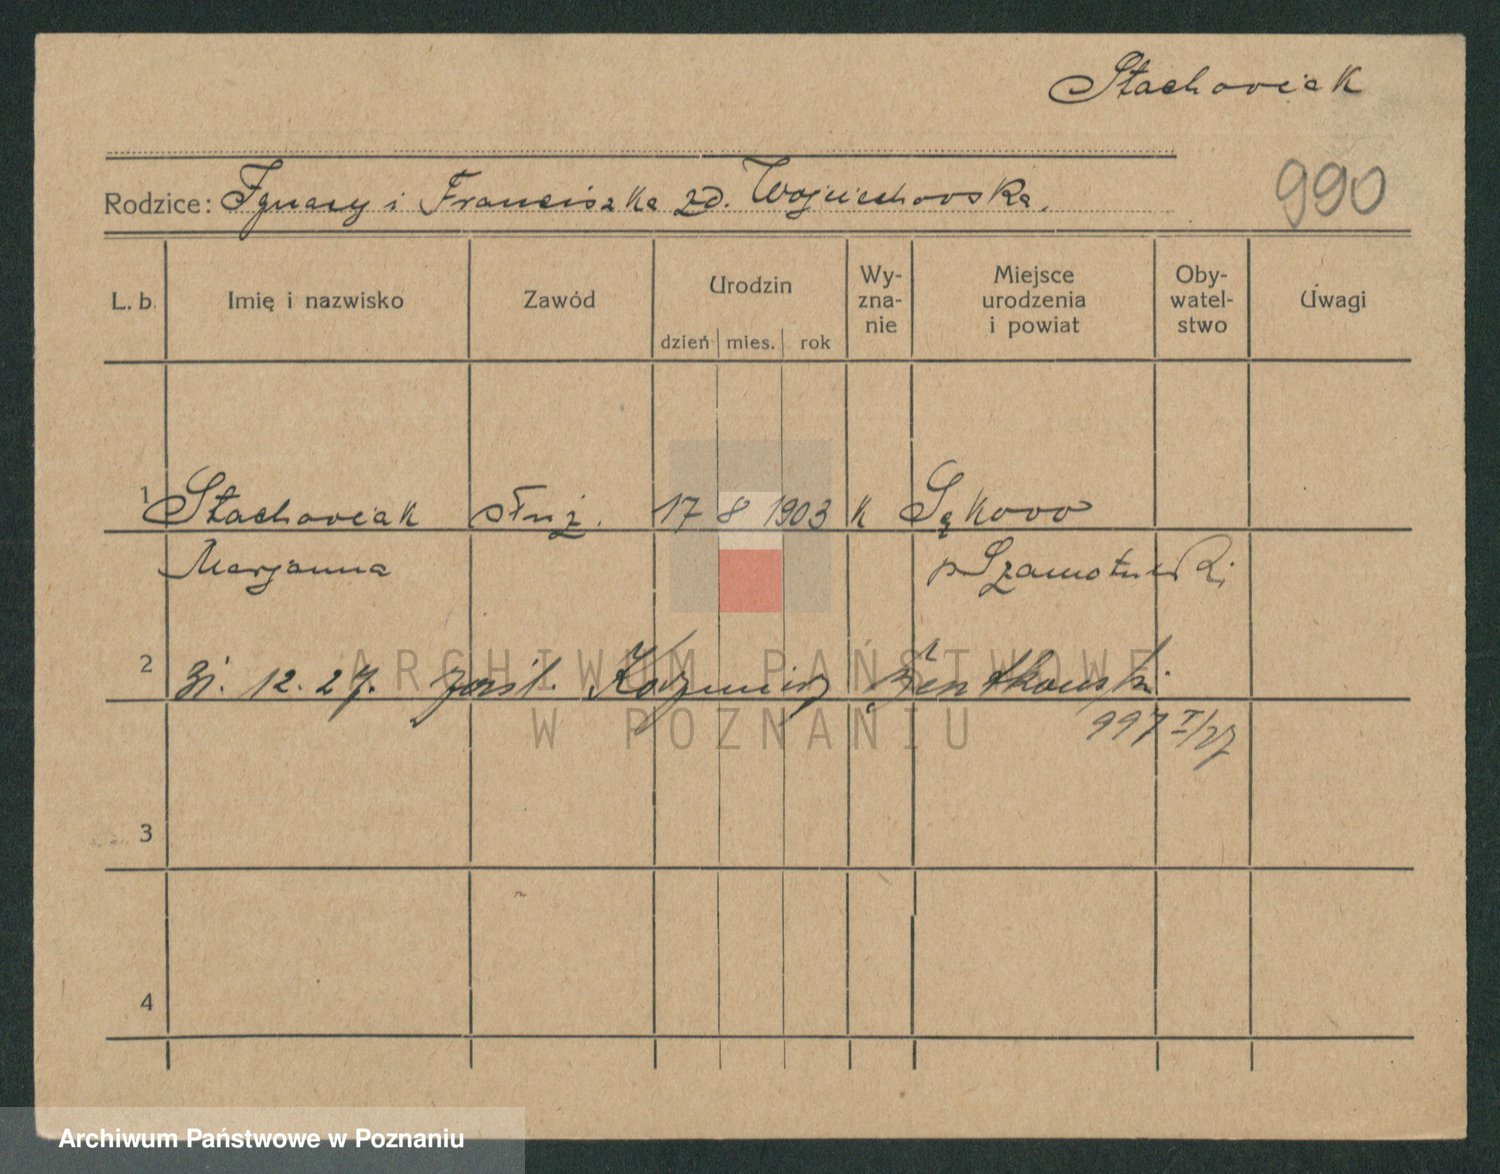 Stachowiak
Rodzice: Ignacy i Franciszka zd. Wojciechowska.
990
L. b. Imię i nazwisko Zawód Urodzin dzień mies. rok Wy-zna-nie Miejsce urodzenia i powiat Oby-watel-stwo Uwagi
1 Stachowiak służ. 17 8 1903 K Sękowo
Marjanna p Szamotulski
2 31. 12. 27. Kazimierz
997 I/27
3
4
ARCHIWUM PAŃSTWOWE
W POZNANIU
Archiwum Państwowe w Poznaniu